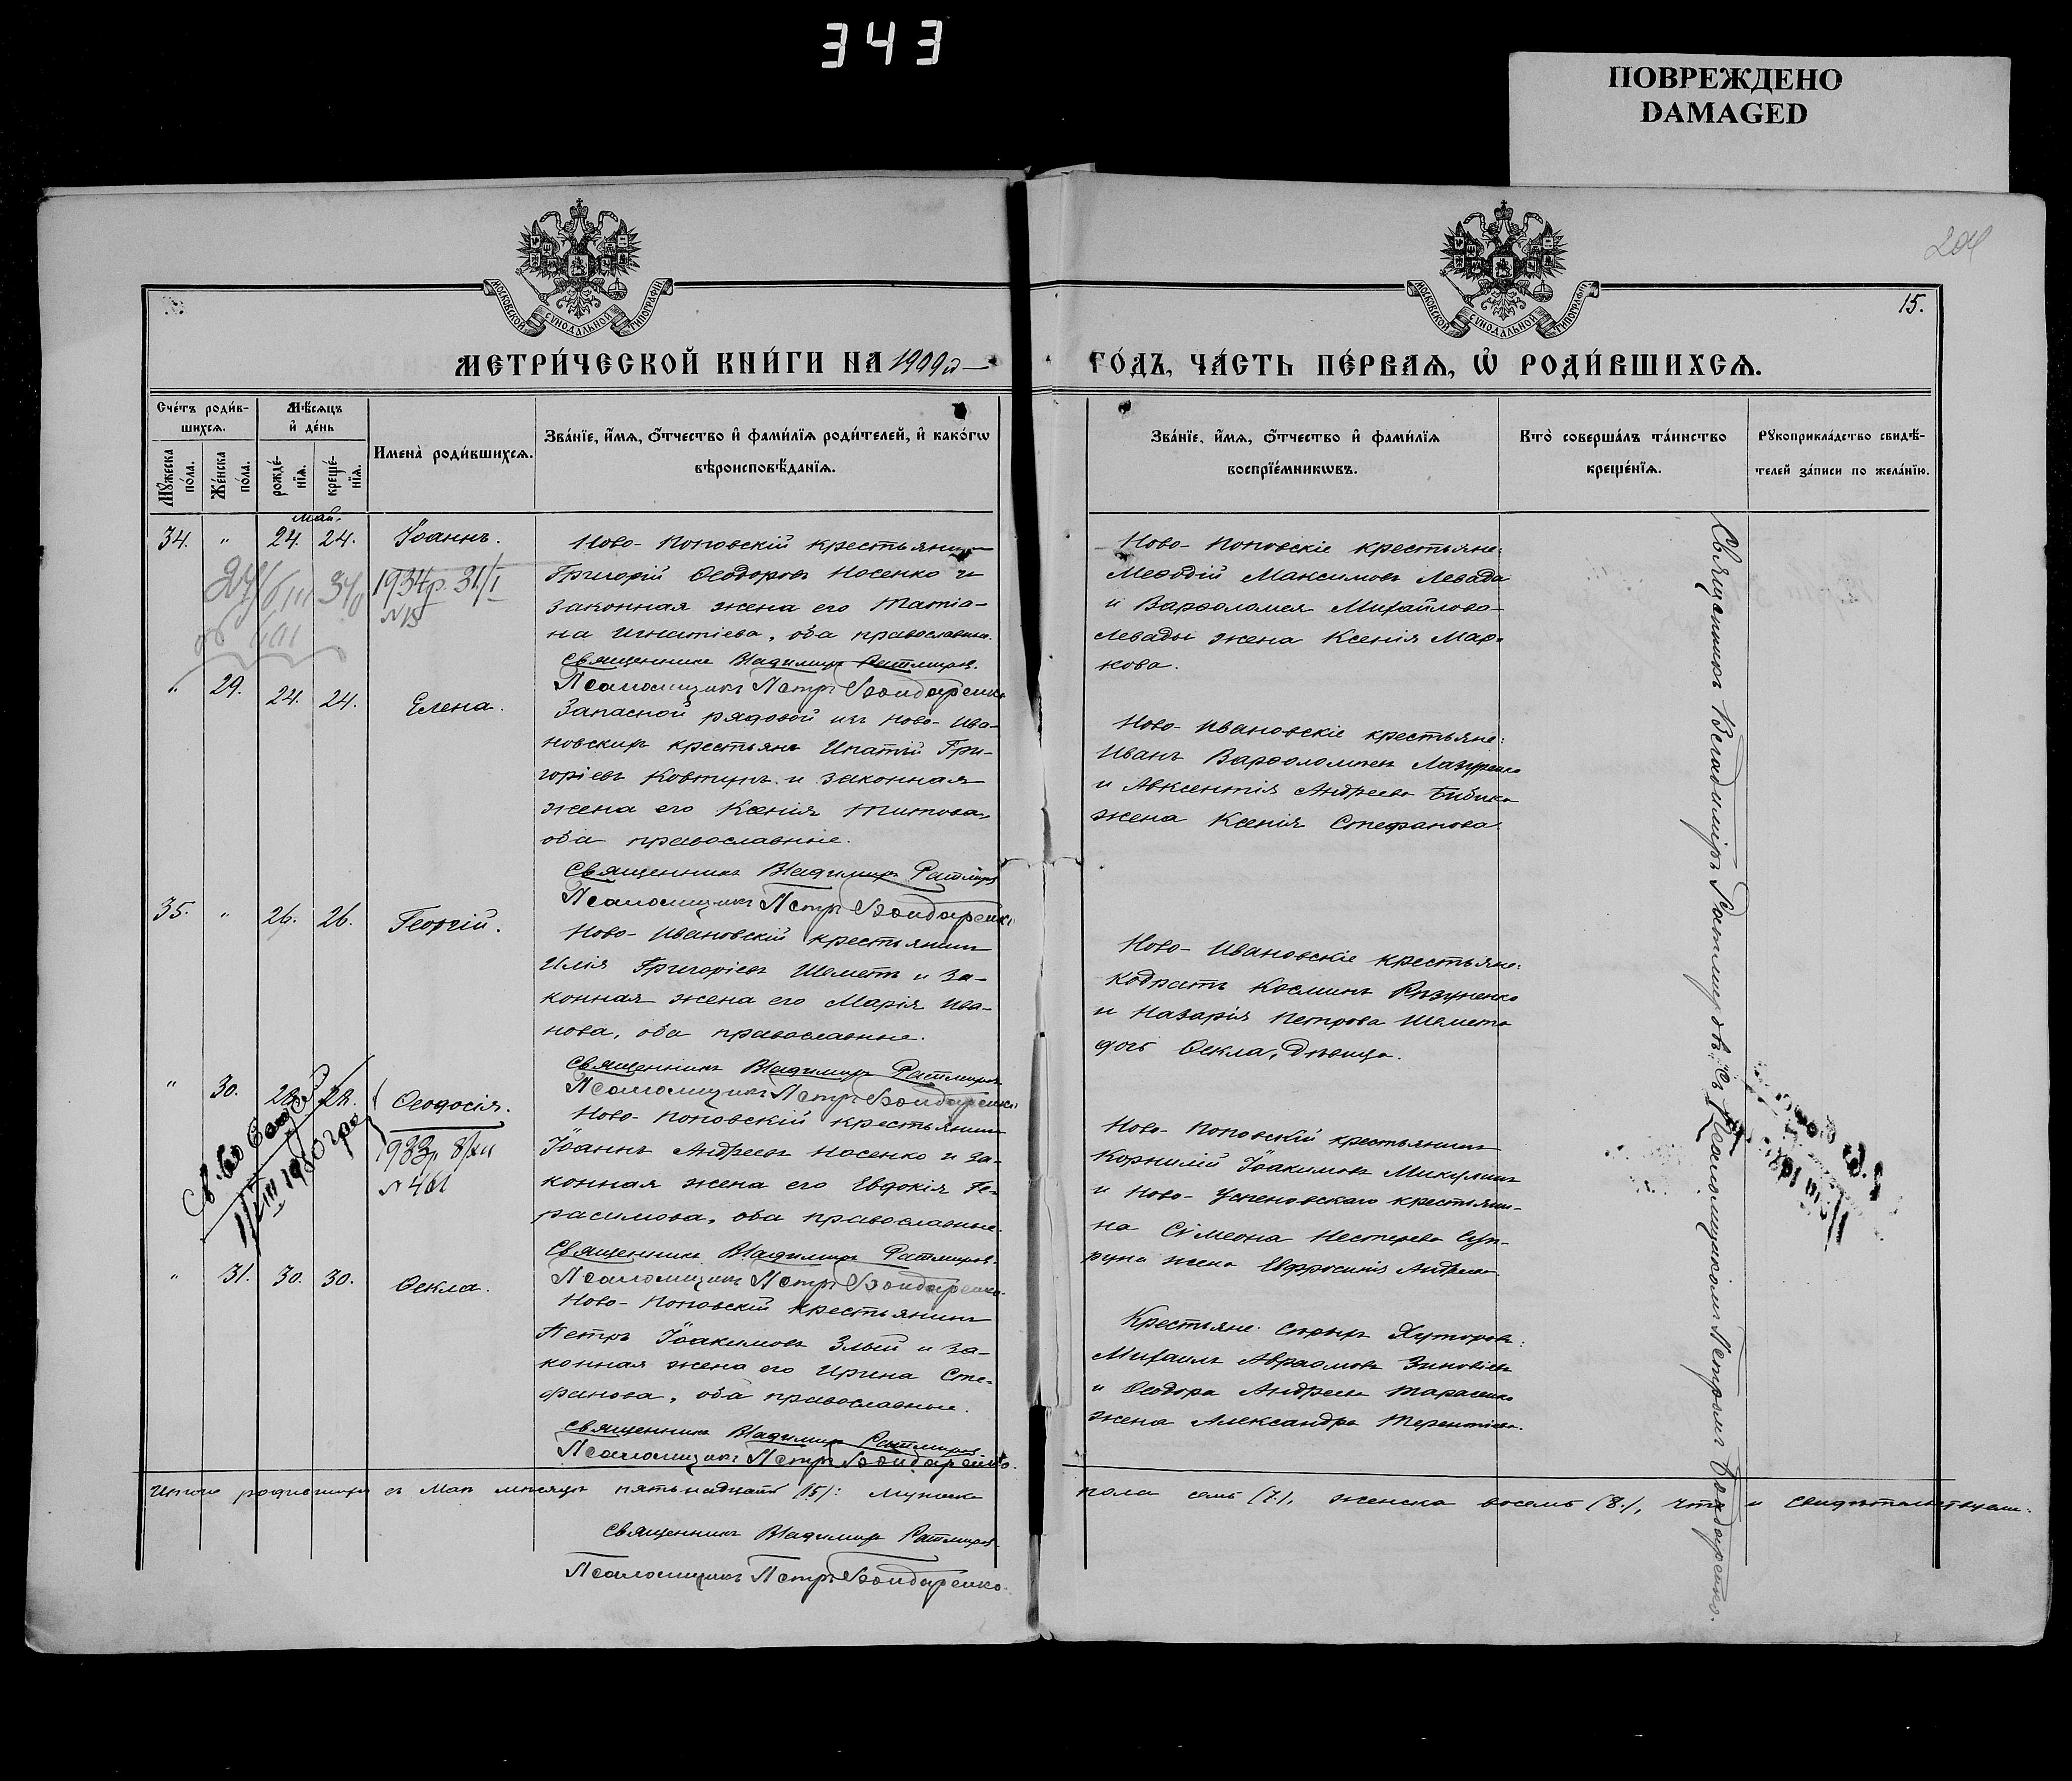 343
ПОВРЕЖДЕНО
DAMAGED
204
МОСКОВСКОЙ СѴНОДАЛЬНОЙ ТИПОГРАФІИ
МОСКОВСКОЙ СѴНОДАЛЬНОЙ ТИПОГРАФІИ
15.
МЕТРИ́ЧЕСКОЙ КНИ́ГИ НА 1909й
ГО́ДЪ, ЧА́СТЬ ПЕ́РВАѦ, Ѽ РОДИ́ВШИХСѦ.
Сче́тъ роди́в-
шихсѧ.
Мѣ́сѧцъ
и҆ де́нь
Мꙋ́жеска по́ла.
Же́нска по́ла.
рожде́-
нїѧ.
креще́-
нїѧ.
Имена̀ роди́вшихсѧ.
Зва́нїе, и҆́мѧ, ѻ҆́тчество и҆ фами́лїѧ роди́телей, и҆ како́гѡ
вѣроисповѣ́данїѧ.
Зва́нїе, и҆́мѧ, ѻ҆́тчество и҆ фами́лїѧ
воспрїе́мникѡвъ.
Кто̀ соверша́лъ та́инство
креще́нїѧ.
Рꙋкоприкла́дство свидѣ́-
телей за́писи по жела́нїю.
Май.
34. " 24. 24. Іоаннъ.
1934р. 31/I
N 15
Ново-Поповскій крестьянинъ
Григорій Ѳеодоровъ Носенко и
законная жена его Татіа-
на Игнатіева, оба православные.
Священникъ Владимиръ Ратмировъ.
Псаломщикъ Петръ Бондаренко
Ново-Поповскіе крестьяне:
Меѳодій Максимовъ Левада
и Варѳоломея Михайлова
Левады жена Ксенія Мар-
кова.
" 29. 24. 24. Елена.
Запасной рядовой изъ Ново-Ива-
новскихъ крестьянъ Ипатій Гри-
горіевъ Ковтунъ и законная
жена его Ксенія Титова,
оба православные.
Священникъ Владимиръ Ратмировъ
Псаломщикъ Петръ Бондаренко
Ново-Ивановскіе крестьяне:
Иванъ Варѳоломеевъ Лазуренко
и Авксентія Андреева Бибика
жена Ксенія Стефанова.
35. " 26. 26. Георгій.
Ново-Ивановскій крестьянинъ
Илія Григоріевъ Шеметъ и за-
конная жена его Марія Ива-
нова, оба православные.
Священникъ Владимиръ Ратмировъ
Псаломщикъ Петръ Бондаренко
Ново-Ивановскіе крестьяне:
Кодратъ Косминъ
и Назарія Петрова Шемета
дочь Ѳекла, дѣвица.
" 30. 28. 28. Ѳеодосія.
1933р 8/XII
N 461
Ново-Поповскій крестьянинъ
Іоаннъ Андреевъ Носенко и за-
конная жена его Евдокія Ге-
расимова, оба православные.
Священникъ Владимиръ Ратмировъ.
Псаломщикъ Петръ Бондаренко.
Ново-Поповскій крестьянинъ
Корнилій Іоакимовъ Микулинъ
и Ново-Успеновскаго крестьяни-
на Сімеона Нестерева Суп-
руна жена Евфросинія Андреева.
" 31. 30. 30. Ѳекла.
Ново-Поповскій крестьянинъ
Петръ Іоакимовъ Злый и за-
конная жена его Ирина Сте-
фанова, оба православные.
Священникъ Владимиръ Ратмировъ.
Псаломщикъ Петръ Бондаренко.
Крестьяне Хуторовъ:
Михаилъ Авраамовъ Зиновіевъ
и Ѳеодора Андреева Тарасенко
жена Александра Терентіева.
Священникъ Владиміръ Ратмировъ съ Псаломщикомъ Петромъ Бондаренко.
Итого родившихся въ Маѣ мѣсяцѣ пятьнадцать (15): мужеска пола семь (7.), женска восемь (8.), что и свидѣтельствуемъ.
Священникъ Владимиръ Ратмировъ.
Псаломщикъ Петръ Бондаренко.